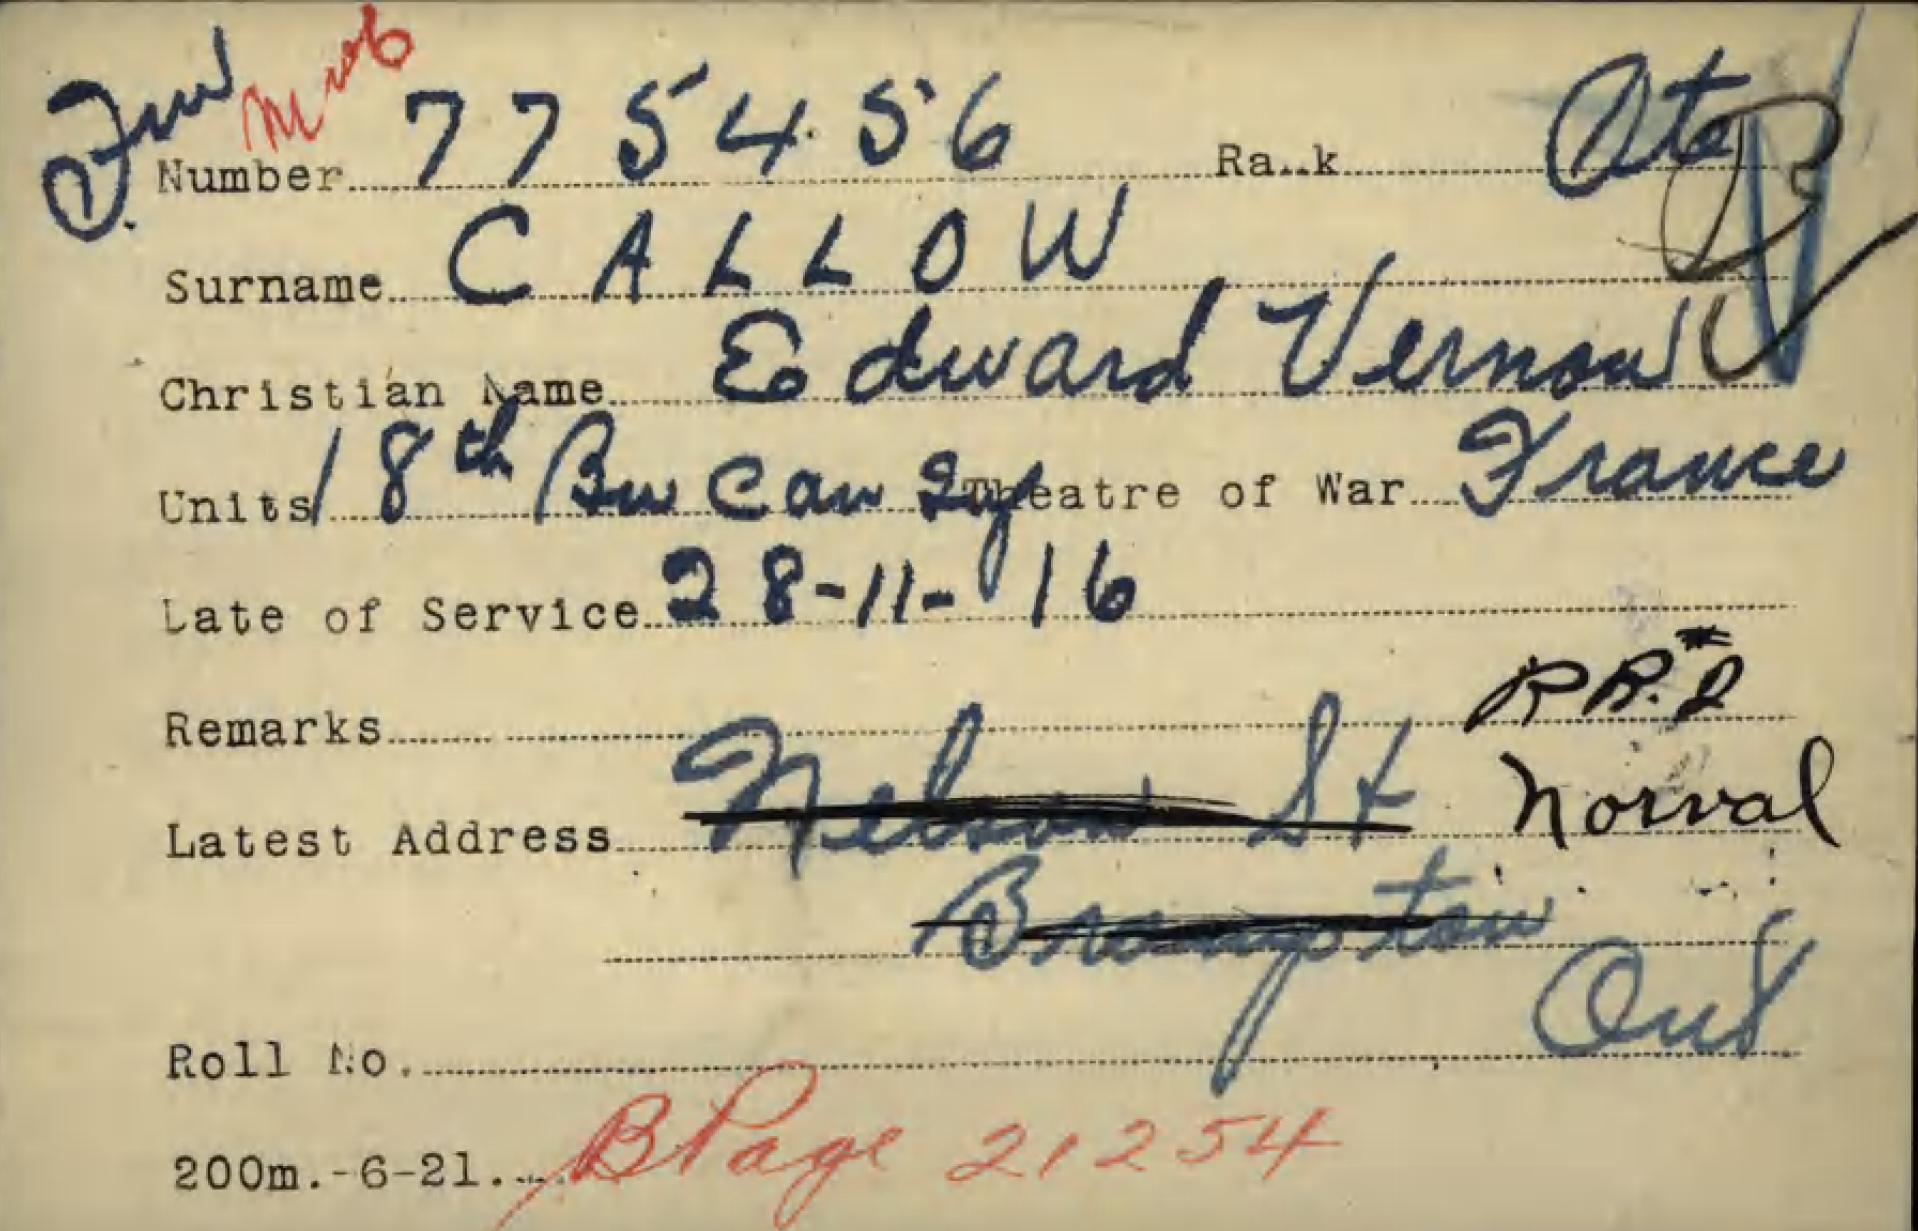 Number 775456 Rank Pte
Surname CALLOW
Christian Name Edward Vernon
Units 18th Bn Can Theatre of War France
Late of Service 28-11-16
Remarks RR.#2
Latest Address Nelson St Norval
Brampton
Ont
Roll No.
200m.-6-21. B Page 21254